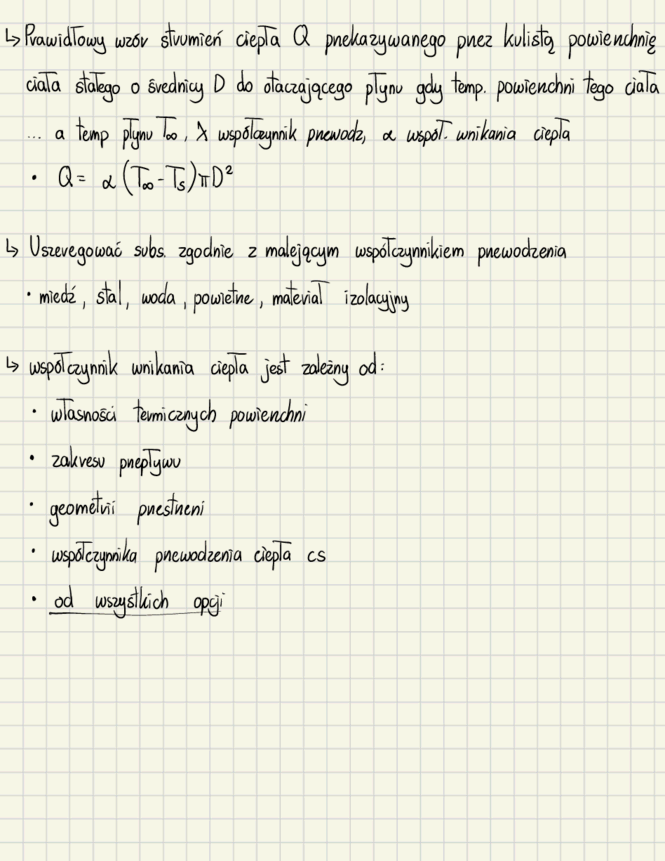 ↳ Prawidłowy wzór strumień ciepła Q przekazywanego przez kulistą powierzchnię
ciała stałego o średnicy D do otaczającego płynu gdy temp. powierzchni tego ciała
... a temp płynu T∞, λ współczynnik przewodz, α współ. wnikania ciepła
• Q = α (T∞ - Ts) π D²
↳ Uszeregować subs. zgodnie z malejącym współczynnikiem przewodzenia
• miedź, stal, woda, powietrze, materiał izolacyjny
↳ współczynnik wnikania ciepła jest zależny od:
• własności termicznych powierzchni
• zakresu przepływu
• geometrii przestrzeni
• współczynnika przewodzenia ciepła cs
• od wszystkich opcji